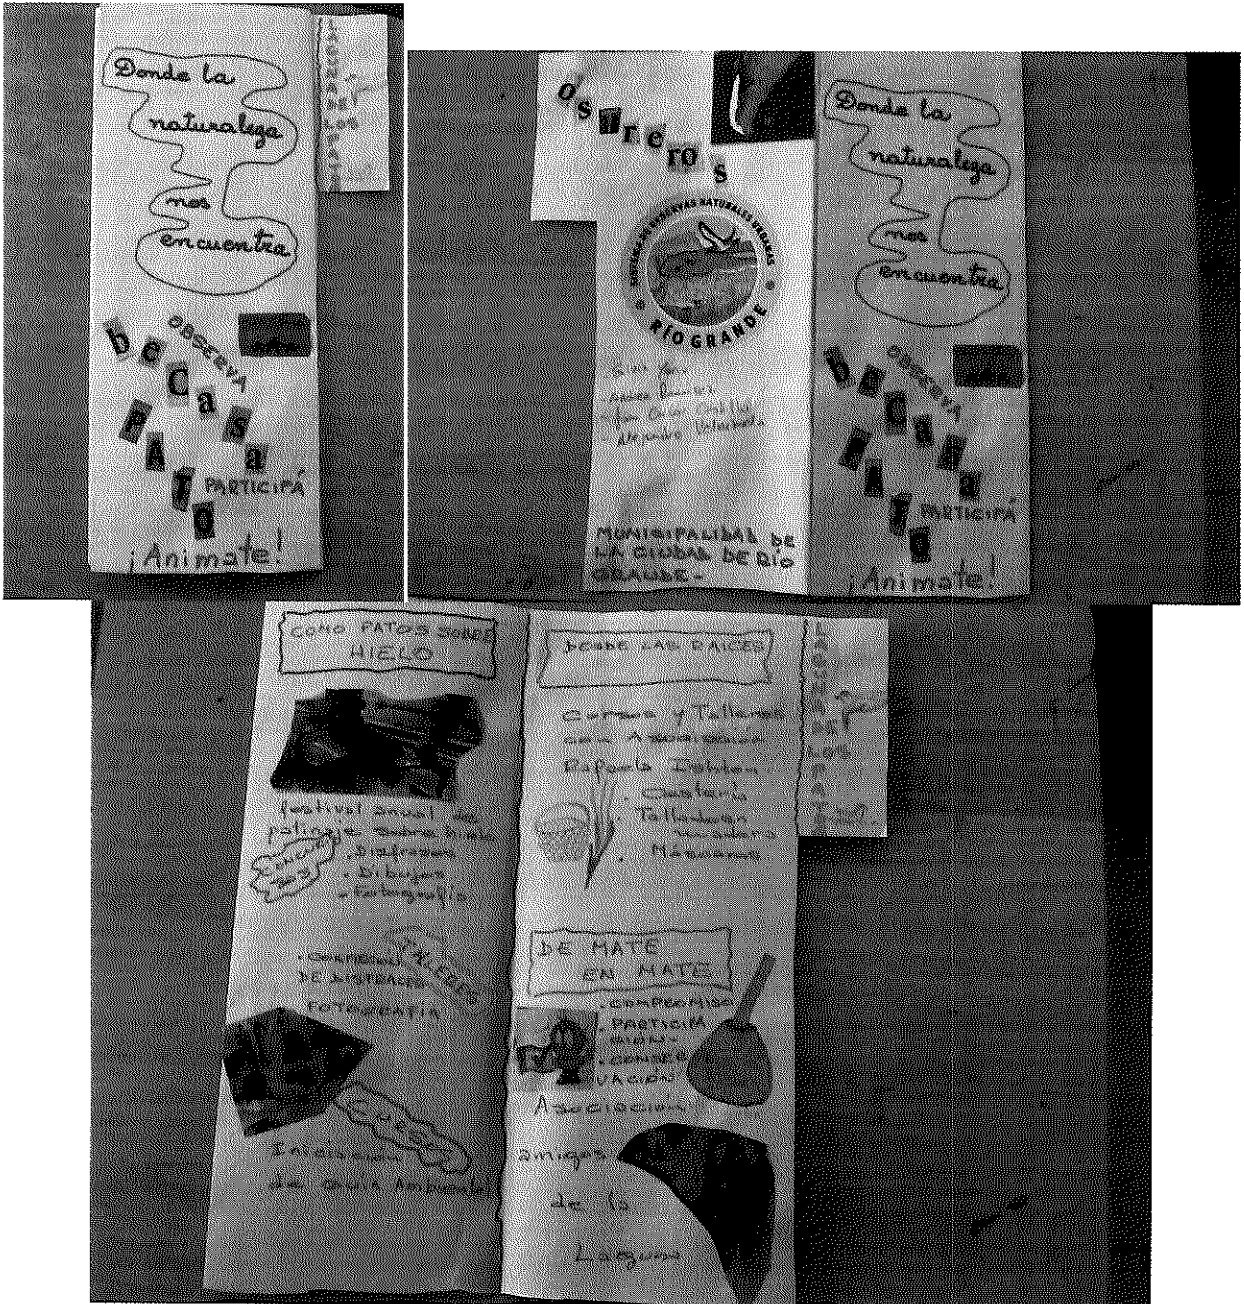 Donde la
naturaleza
nos
encuentra
OBSERVA
beCasa
PATO
PARTICIPÁ
¡Animate!
LAGUNA DE LOS PATOS
osTreros
SISTEMA DE RESERVAS NATURALES URBANAS
RÍO GRANDE
MUNICIPALIDAD DE
LA CIUDAD DE RÍO
GRANDE-
Donde la
naturaleza
nos
encuentra
OBSERVA
beCasa
PATO
PARTICIPÁ
¡Animate!
COMO PATOS SOBRE
HIELO
festival anual de
patinaje sobre hielo
CONCURSO
. Disfraces
. Dibujos
- Fotografía
DE DISFRACES
FOTOGRAFIA
CURSO
Iniciación
de Guía Ambiental
DESDE LAS RAICES
Cursos y Talleres
con Asociación
Rafaela Ishton
. Cestería
. Tallado en
madera
. Máscaras
DE MATE
EN MATE
. COMPROMISO
. PARTICIPA
CION-
. CONSER
VACIÓN
Asociación
amigos
de la
Laguna
LAGUNA DE LOS PATOS